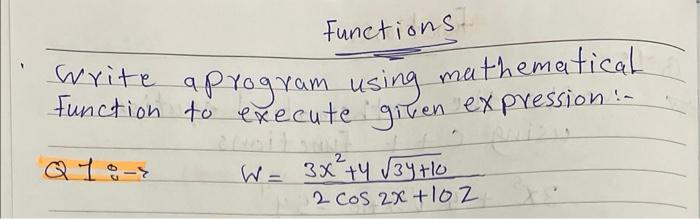 Functions
Write a program using mathematical
function to execute given expression :-
Q1:-> W = 3x²+4√3y+10
2 cos 2x+10z